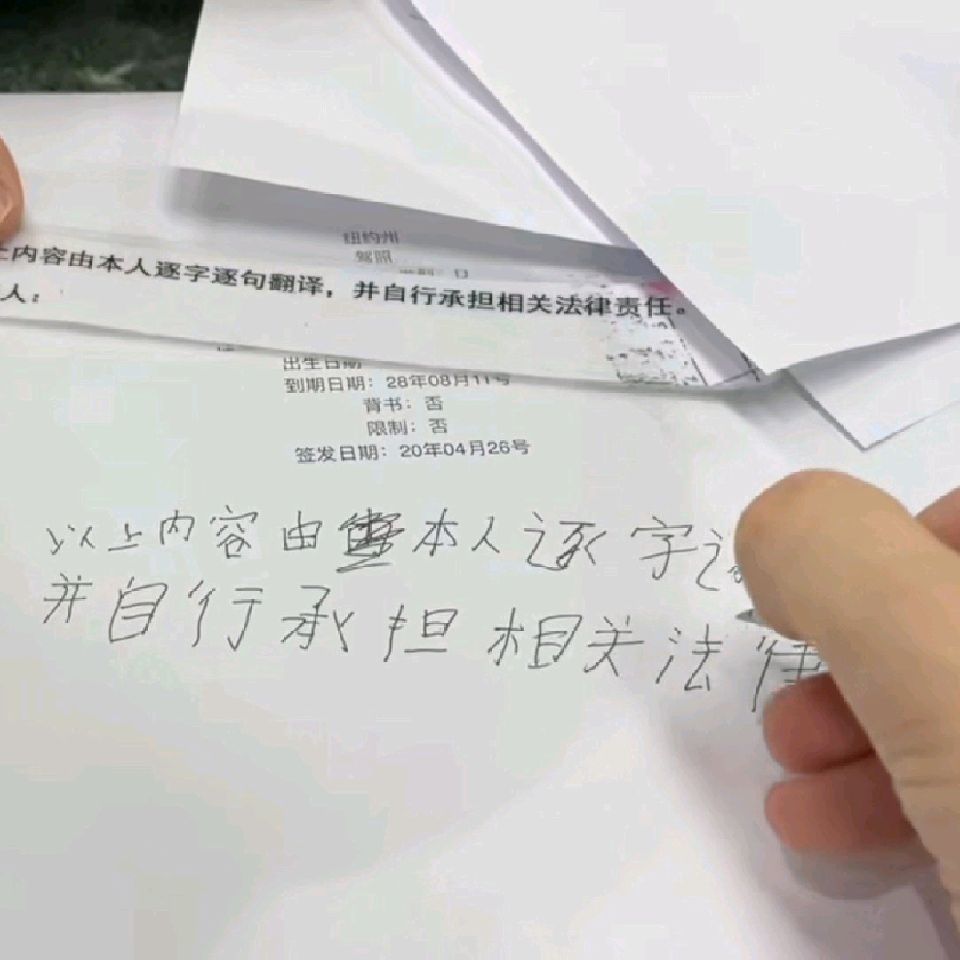 纽约州
驾照
类别：D
上内容由本人逐字逐句翻译，并自行承担相关法律责任。
人：
出生日期
到期日期：28年08月11号
背书：否
限制：否
签发日期：20年04月26号
以上内容由本人逐字
并自行承担相关法律